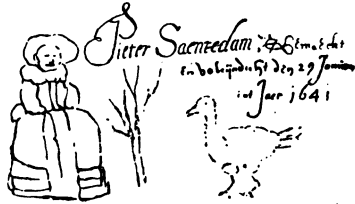 Pieter Saenredam, Gemaeckt
en voleijndicht den 29 Junius
int Jaer 1641